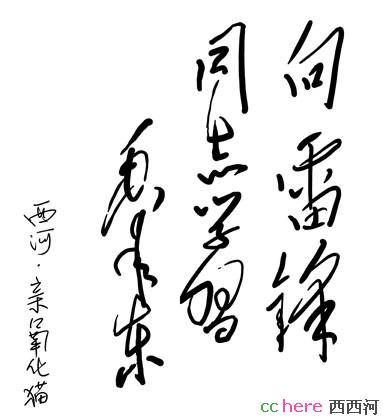 向雷锋
同志学习
毛泽东
西河·亲氧化猫
cchere 西西河